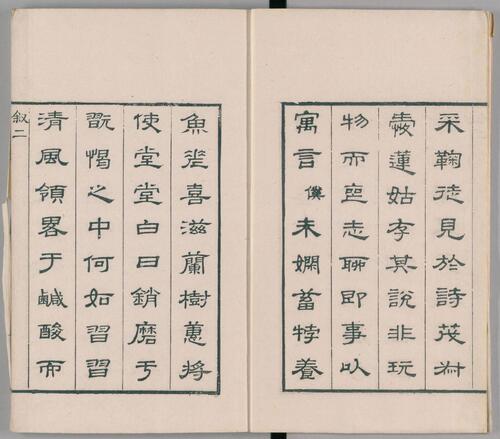 采鞠徒見於詩茂叔
愛蓮姑存其說非玩
物而喪志聊即事以
寓言僕未嫻畜牸養
魚差喜滋蘭樹蕙將
使堂堂白日銷磨于
翫愒之中何如習習
清風領畧于鹹酸而
叙二